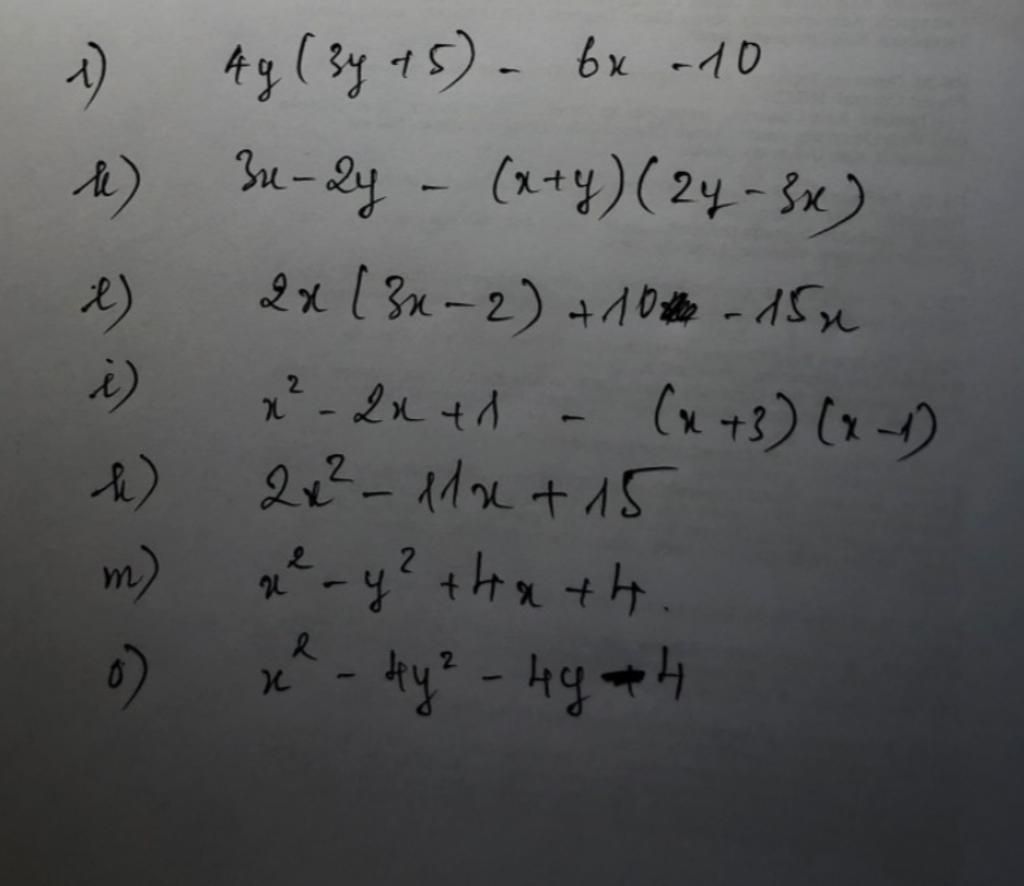 i) 4y(3y+5) - 6x - 10
k) 3x - 2y - (x+y)(2y-3x)
l) 2x(3x-2) + 10 - 15x
i) x² - 2x + 1 - (x+3)(x-1)
k) 2x² - 11x + 15
m) x² - y² + 4x + 4.
o) x² - 4y² - 4y - 4